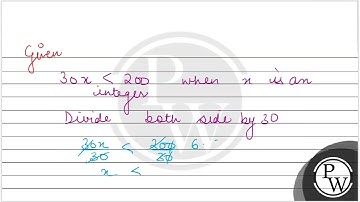 Given
30x < 200 when x is an
integer
Divide both side by 30
30x/30 < 200/30 6.
x <
PW
PW